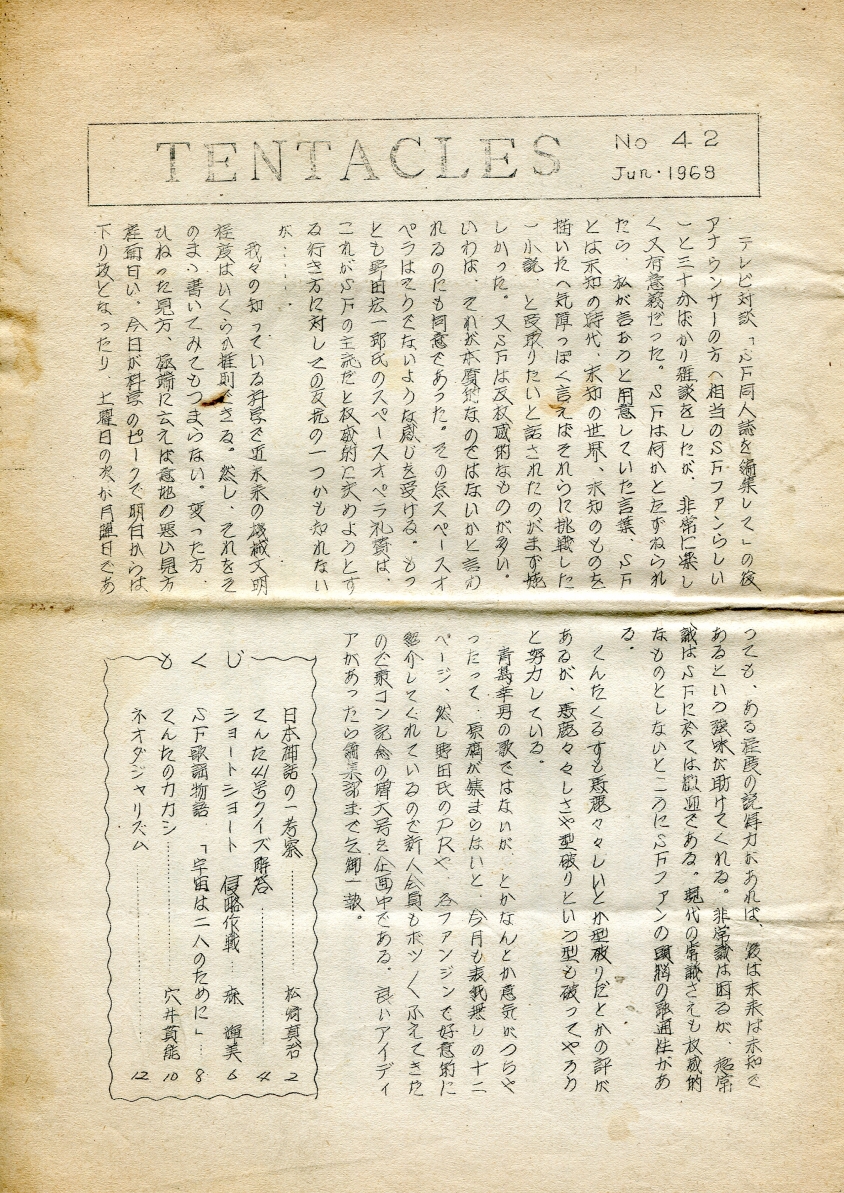 TENTACLES
No 42
Jun・1968
テレビ対談「SF同人誌を編集して」の後
アナウンサーの方へ相当のSFファンらしい
ーと三十分ばかり雑談をしたが、非常に楽し
く又有意義だった。SFは何かとたずねられ
たら、私が言おうと用意していた言葉、SF
とは未知の時代、未知の世界、未知のものを
描いたへ気障っぽく言えばそれらに挑戦した
ー小説、と受取りたいと話されたのがまず嬉
しかった。又SFは反权威的なものが多い。
いわば、それが本質的なのではないかと言わ
れるのにも同意であった。その点スペースオ
ペラはそうでないような感じを受ける。もっ
とも野田宏一郎氏のスペースオペラ礼賛は、
これがSFの主流だと权威的に決めようとす
る行き方に対しての反抗の一つかも知れない
が‥‥‥。
我々の知っている科学で近未来の機械文明
程度はいくらか推測できる。然し、それをそ
のまゝ書いてみてもつまらない。変った方、
ひねった見方、極端に云えば意地の悪い見方
程面白い。今日が科学のピークで明日からは
下り坂となったり、土曜日の次が月曜日であ
っても、ある程度の説得力があれば、後は未来は未知で
あるという強味が助けてくれる。非常識は困るが、超常
識はSFに於ては歓迎である。現代の常識さえも权威的
なものとしないところにSFファンの頭脳の融通性があ
る。
てんたくるずも悪魔々々しいとか型破りだとかの評が
あるが、悪魔々々しさや型破りという型も破ってやろう
と努力している。
青島幸男の歌ではないが、とかなんとか意気がつらや
ったって、原稿が集まらないと、今月も表紙無しの十二
ページ、然し野田氏のPRや、各ファンジンで好意的に
紹介してくれているので新人会員もボツ〳〵ふえてきた
ので東コン記念の増大号を企画中である。良いアイディ
アがあったら編集部まで乞御一報。
もくじ
日本神話の一考察‥‥‥‥‥松崎真治 2
てんた41号クイズ解答‥‥‥‥‥‥ 4
ショートショート 侵略作戦‥森 輝美 6
SF歌謡物語「宇宙は二人のために」‥ 8
てんたのカカシ‥‥‥‥‥穴井貫能 10
ネオダジャリズム‥‥‥‥‥‥‥‥ 12